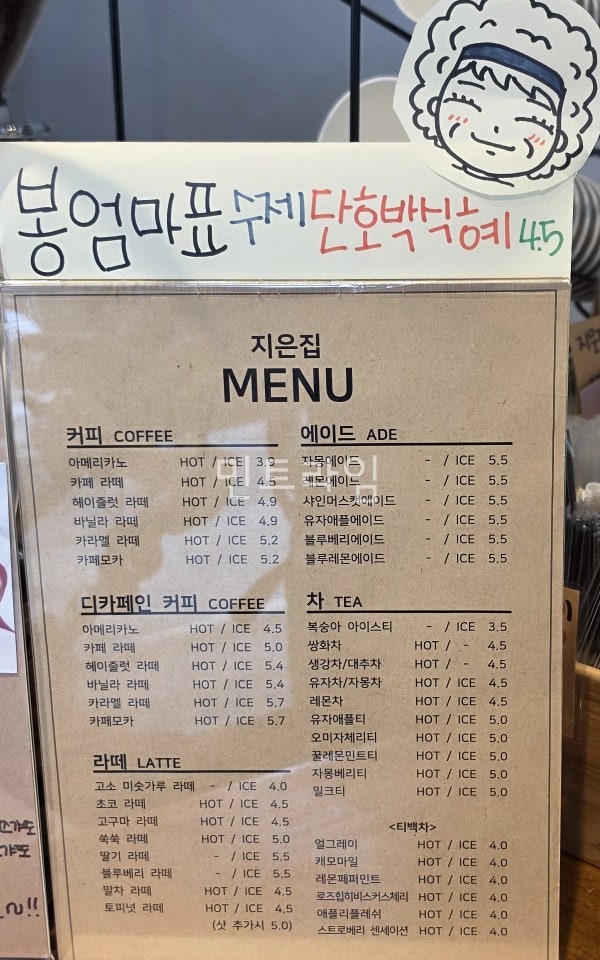 봉엄마표 수제 단호박식혜 4.5
지은집
MENU
커피 COFFEE
아메리카노 HOT / ICE 3.9
카페 라떼 HOT / ICE 4.5
헤이즐럿 라떼 HOT / ICE 4.9
바닐라 라떼 HOT / ICE 4.9
카라멜 라떼 HOT / ICE 5.2
카페모카 HOT / ICE 5.2
디카페인 커피 COFFEE
아메리카노 HOT / ICE 4.5
카페 라떼 HOT / ICE 5.0
헤이즐럿 라떼 HOT / ICE 5.4
바닐라 라떼 HOT / ICE 5.4
카라멜 라떼 HOT / ICE 5.7
카페모카 HOT / ICE 5.7
라떼 LATTE
고소 미숫가루 라떼 - / ICE 4.0
초코 라떼 HOT / ICE 4.5
고구마 라떼 HOT / ICE 4.5
쑥쑥 라떼 HOT / ICE 5.0
딸기 라떼 - / ICE 5.5
블루베리 라떼 - / ICE 5.5
말차 라떼 HOT / ICE 4.5
토피넛 라떼 HOT / ICE 4.5
(샷 추가시 5.0)
에이드 ADE
자몽에이드 - / ICE 5.5
레몬에이드 - / ICE 5.5
샤인머스캣에이드 - / ICE 5.5
유자애플에이드 - / ICE 5.5
블루베리에이드 - / ICE 5.5
블루레몬에이드 - / ICE 5.5
차 TEA
복숭아 아이스티 - / ICE 3.5
쌍화차 HOT / - 4.5
생강차/대추차 HOT / - 4.5
유자차/자몽차 HOT / ICE 4.5
레몬차 HOT / ICE 4.5
유자애플티 HOT / ICE 5.0
오미자체리티 HOT / ICE 5.0
꿀레몬민트티 HOT / ICE 5.0
자몽베리티 HOT / ICE 5.0
밀크티 HOT / ICE 5.0
<티백차>
얼그레이 HOT / ICE 4.0
캐모마일 HOT / ICE 4.0
레몬페퍼민트 HOT / ICE 4.0
로즈힙히비스커스체리 HOT / ICE 4.0
애플리플레쉬 HOT / ICE 4.0
스트로베리 센세이션 HOT / ICE 4.0
민트라임